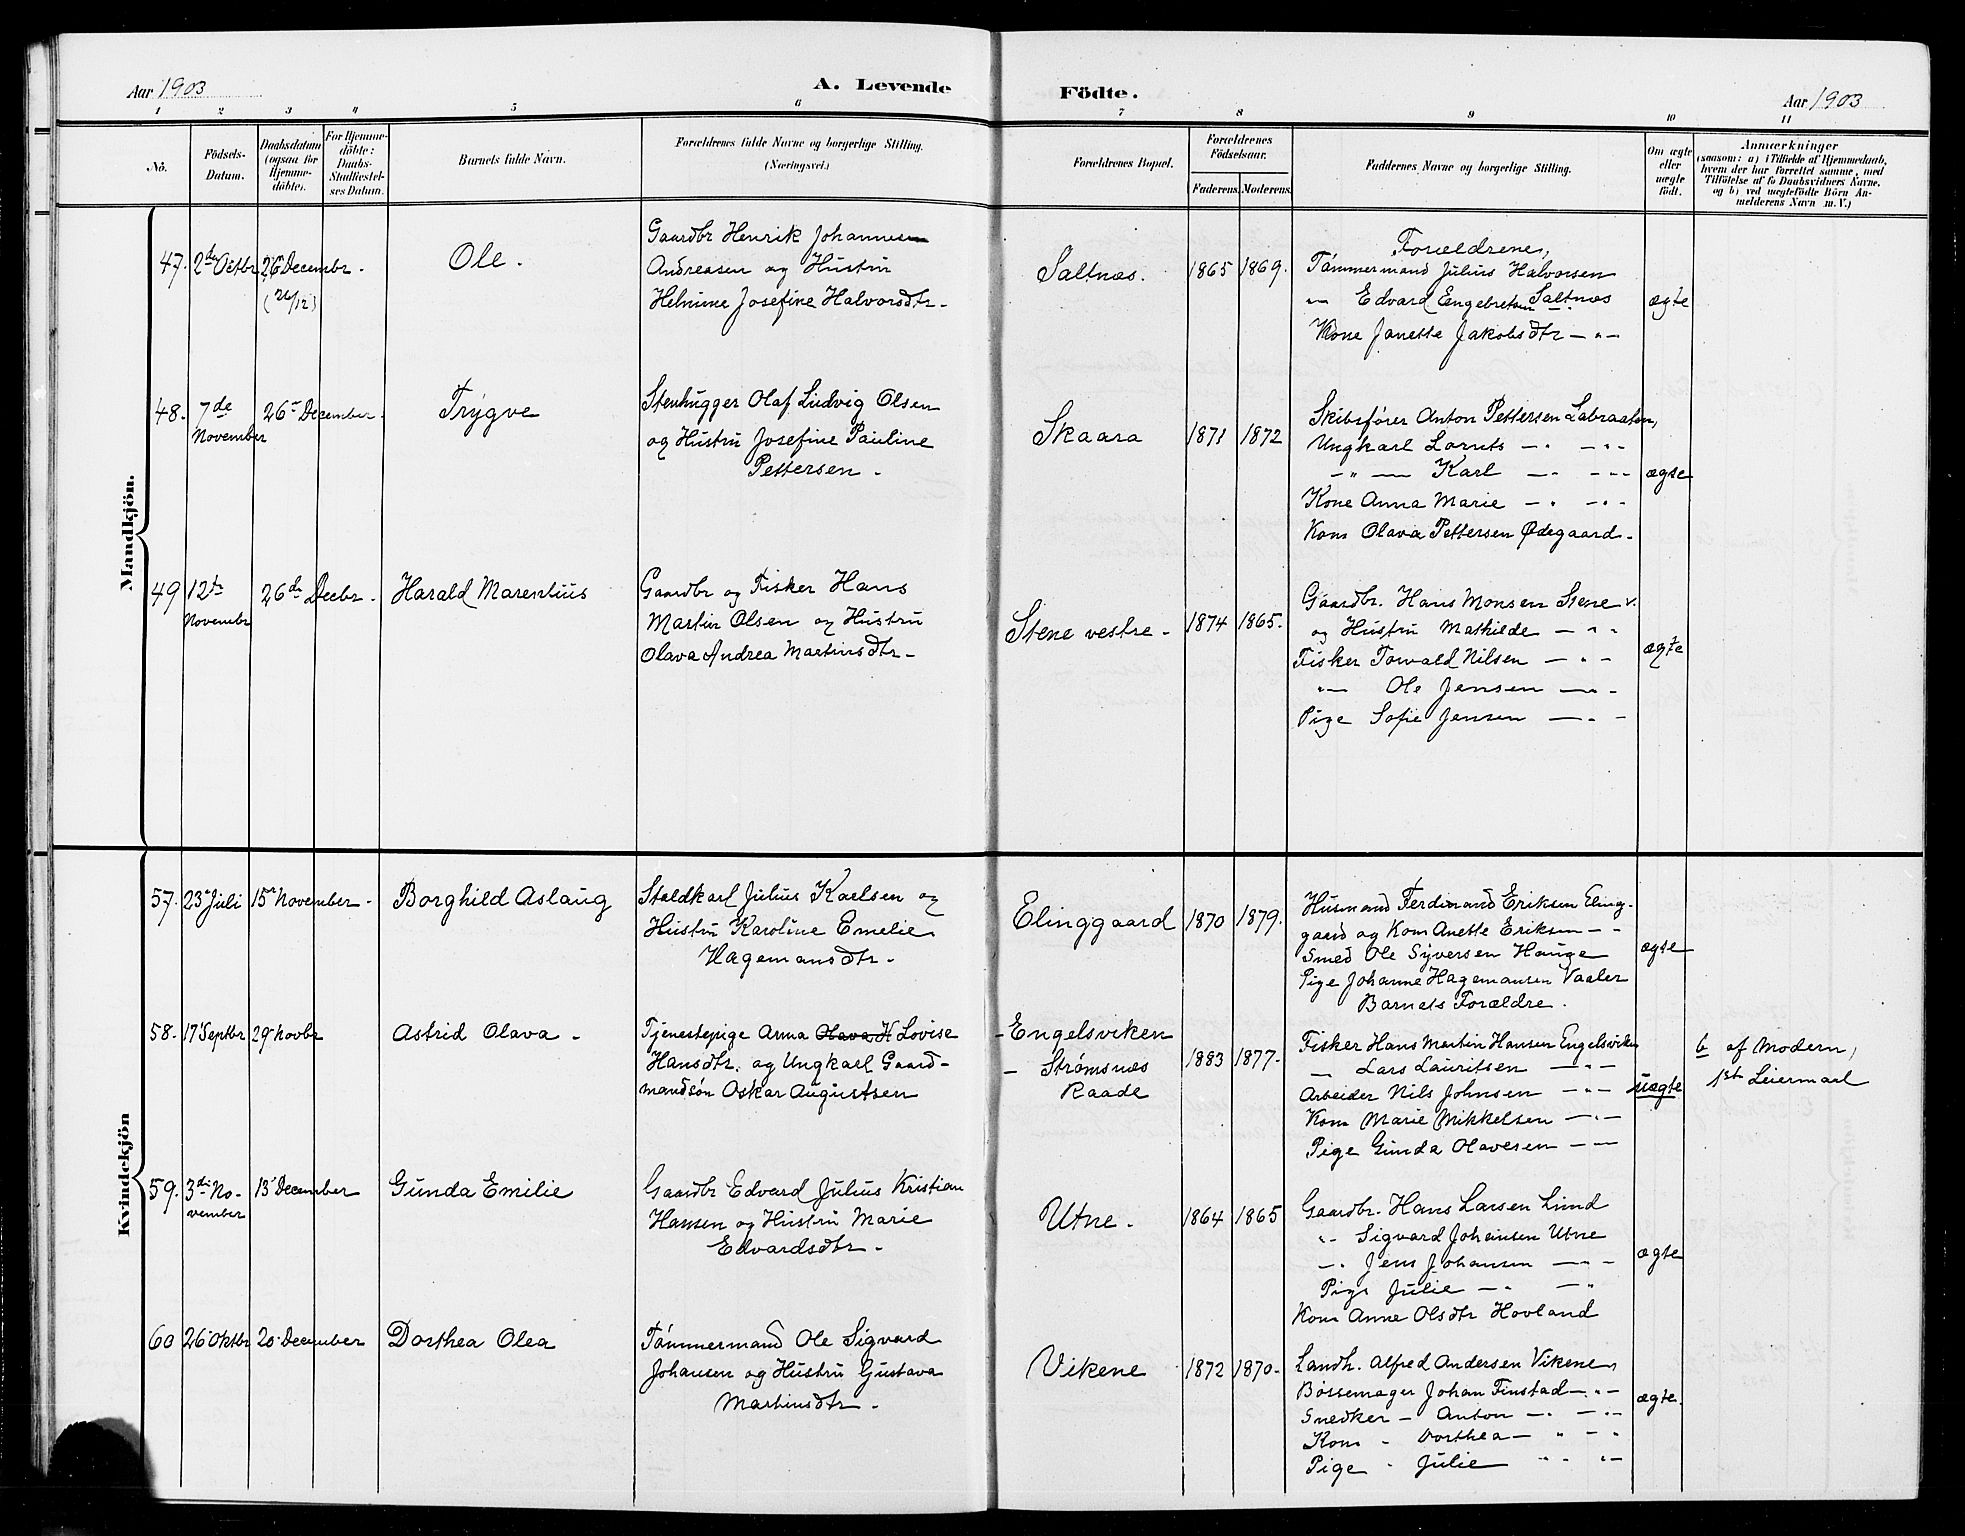 Aar 1903
A. Levende
Födte.
Aar 1903
1 2 3 4 5 6 7 8 9 10 11
No.
Födsels-
Datum.
Daabsdatum
(ogsaa for
Hjemme-
döbte).
For Hjemme-
döbte:
Daabs-
Stadfæstel-
ses Datum.
Barnets fulde Navn.
Forældrenes fulde Navne og borgerlige Stilling.
(Næringsvei.)
Forældrenes Bopæl.
Forældrenes
Födselsaar.
Faderens. Moderens.
Faddernes Navne og borgerlige Stilling.
Om ægte
eller
uægte
født.
Anmærkninger
(saasom: a) i Tilfælde af Hjemmedaab,
hvem der har forrettet samme, med
Tilföielse af to Daabsvidners Navne,
og b) ved uægtefödte Börn An-
melderens Navn m. V.)
Mandkjön.
47. 2den Octbr 26 Decembr.
(26/12)
Ole.
Gaardbr Henrik Johannesen
Andreasen og Hustru
Helmine Josefine Halvorsdtr.
Saltnæs.
1865 1869.
Forældrene,
Tömmermand Julius Halvorsen
-"- Edvard Engebretsen Saltnæs
Kone Janette Jakobsdtr - " -
ægte
48. 7de
November
26de December.
Trygve
Stenhugger Olaf Ludvig Olsen
og Hustru Josefine Pauline
Pettersen.
Skaara
1871 1872
Skibsfører Anton Pettersen Labraaten,
Ungkarl Lornts - " - " -
- " - Karl - " - " -
Kone Anna Marie - " - " -
Kone Olava Pettersen Ødegaard.
ægte
49 12te
Novembr
26de Decbr.
Harald Marentius
Gaardbr og Fisker Hans
Martin Olsen og Hustru
Olava Andrea Martinsdtr.
Stene vestre.
1874 1865.
Gaardbr. Hans Monsen Stene v.
og Hustru Mathilde - " -
Fisker Torvald Nilsen - " -
-"- Ole Jensen - " -
Pige Sofie Jensen - " -
ægte
Kvindekjön
57. 23de Juli 15de November.
Borghild Aslaug
Staldkarl Julius Karlsen og
Hustru Karoline Emelie
Hagemansdtr.
Elinggaard
1870 1879.
Husmand Ferdinand Eriksen Eling-
gaard og Kone Anette Eriksen - -
Smed Ole Syversen Hauge
Pige Johanne Hagemansen Vaaler
Barnets Forældre.
ægte
58. 17 Septbr 29 Novbr
Astrid Olava.
Tjenestepige Anna Olava H Lovise
Hansdtr. og Ungkarl Gaard-
mandsøn Oskar Augustsen
- Engelsviken
- Strømnæs
Raade
1883 1877.
Fisker Hans Martin Hansen Engelsviken
- Lars Lauritsen - " -
Arbeider Nils Johnsen - " -
Kone Marie Mikkelsen - " -
Pige Gunda Olavesen - -
uægte
b af Modern,
1ste Leiermaal
59. 3de No-
vember
13 December
Gunda Emilie
Gaardbr Edvard Julius Kristian
Hansen og Hustru Marie
Edvardsdtr.
Utne.
1864 1865
Gaardbr. Hans Larsen Lund
" - Sigvard Johansen Utne
- " Jens Johansen - " -
Pige Julie - " - "
Kone Anne Olsdtr Hovland
ægte
60 26 Oktbr 20 December
Dorthea Olea
Tömmermand Ole Sigvard
Johansen og Hustru Gustava
Martinsdtr.
Vikene
1872 1870.
Landh. Alfred Andersen Vikene,
Bøssemager Johan Finstad - " -
Snedker - Anton - " - " -
Kone - Dorthea - " - "
Pige " Julie " " " -
ægte.